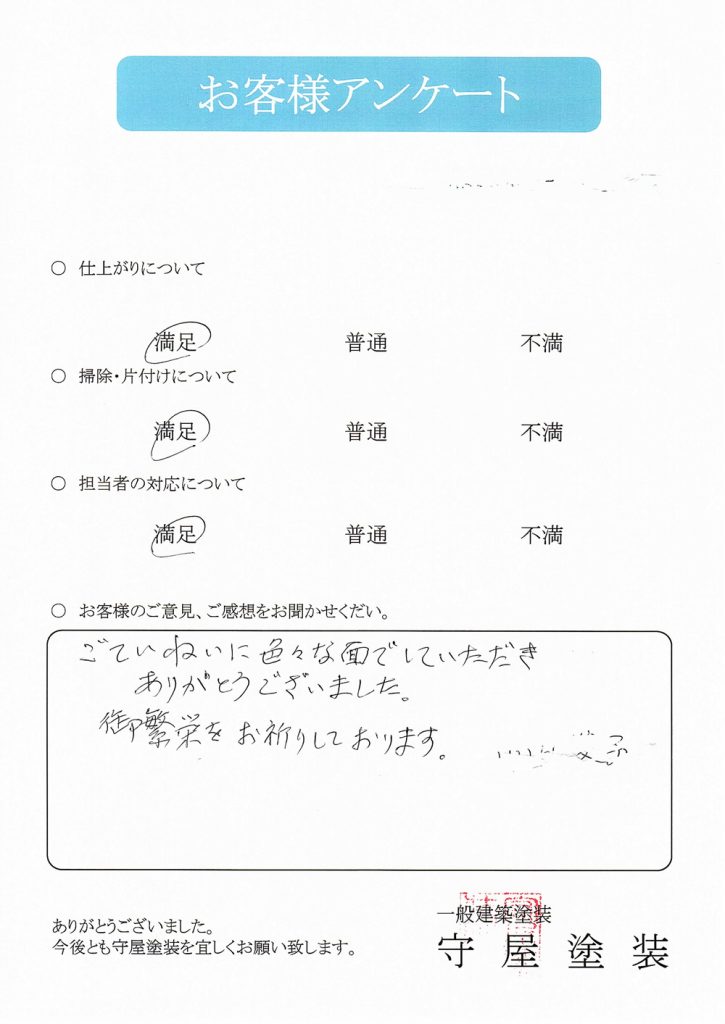 お客様アンケート
○ 仕上がりについて
満足 普通 不満
○ 掃除・片付けについて
満足 普通 不満
○ 担当者の対応について
満足 普通 不満
○ お客様のご意見、ご感想をお聞かせくだい。
ごていねいに色々な面でしていただき
ありがとうございました。
御繁栄をお祈りしております。
ありがとうございました。
今後とも守屋塗装を宜しくお願い致します。
一般建築塗装
守屋塗装